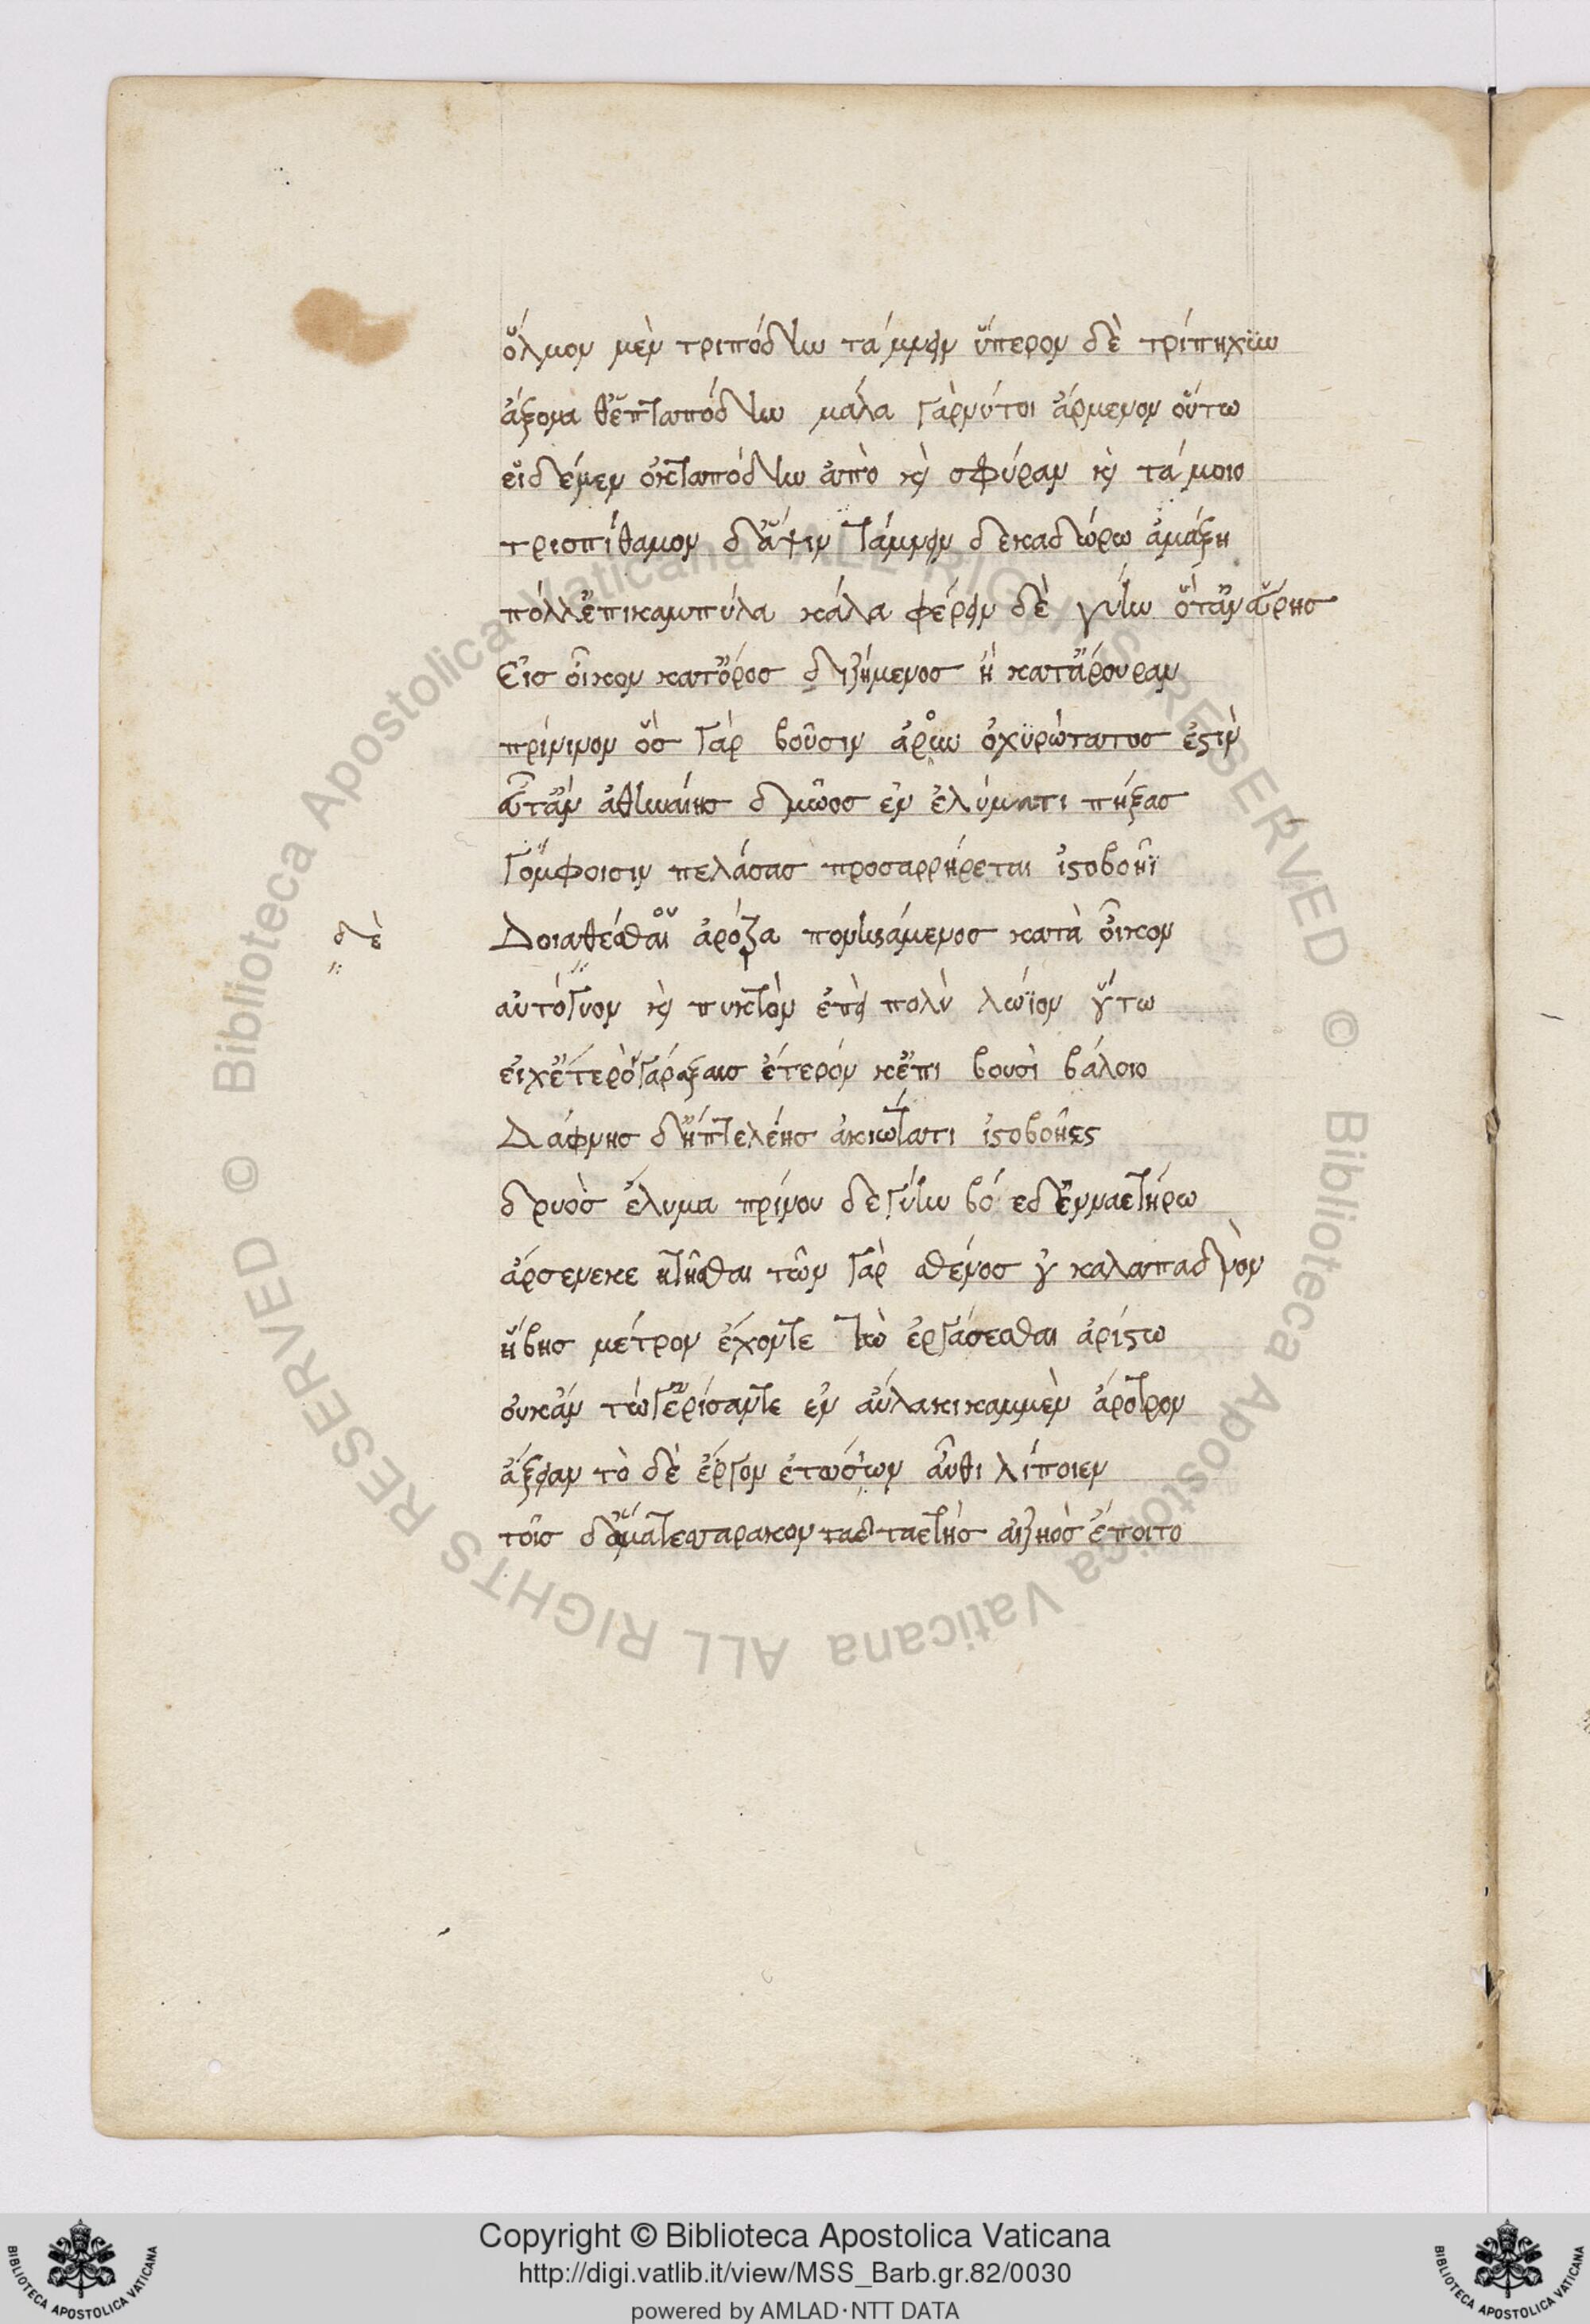 ὅλμον μὲν τριπόδην τάμνειν ὕπερον δὲ τρίπηχϋν
ἄξονα θ᾽ἑπταπόδην μάλα γάρ νύ τοι ἄρμενον οὕτω
εἰ δέ μεν ὀκταπόδην ἀπὸ κὶ σφύραν κὶ τάμοιο
τρισπίθαμον δ᾽ἄψιν τάμνειν δεκαδώρω ἁμάξη
πόλλ᾽ ἐπικαμπύλα κάλα φέρειν δὲ γύην ὅτ᾽ἂν εὕρης
Εἰς οἶκον κατ᾽ ὄρος διζήμενος ἢ κατ᾽ ἄρουραν
πρίνινον ὃς γὰρ βουσὶν ἀροῦν ὀχϋρώτατος ἐστιν
εὖτ᾽ ἂν ἀθηναίης δμῶος ἐν ἐλύματι πήξας
γόμφοισιν πελάσας προσαρρήρεται ἱστοβοῆϊ
δὲ
Δοια θέσθαι ἄροτρα πονησάμενος κατὰ οἶκον
αὐτόγυον κὶ πυκτὸν ἐπεὶ πολὺ λώϊον οὕτω
εἰ χ᾽ ἕτερόν γ᾽ ἄξαις ἕτερόν κ᾽ ἐπι βουσὶ βάλοιο
Δάφνης δ᾽ ἢ πτελέης ἀκιώτατι ἱστοβοῆες
δρυὸς ἔλυμα πρίνου δὲ γύην βόε δ᾽ ἐνναετήρω
ἄρσενε κεκτῆσθαι τῶν γὰρ σθένος οὐκ ἀλαπαδνὸν
ἥβης μέτρον ἔχοντε τὼ ἐργάζεσθαι ἀρίστω
οὐκ ἂν τώ γ᾽ ἐρίσαντε ἐν αὔλακι καμμὲν ἄροτρον
ἄξειαν τὸ δὲ ἔργον ἐτώσιον αὖθι λίποιεν
τοῖς δ᾽ ἅμα τεσσαρακονταεταετὴς αἰζηὸς ἕποιτο
Copyright © Biblioteca Apostolica Vaticana
http://digi.vatlib.it/view/MSS_Barb.gr.82/0030
powered by AMLAD·NTT DATA